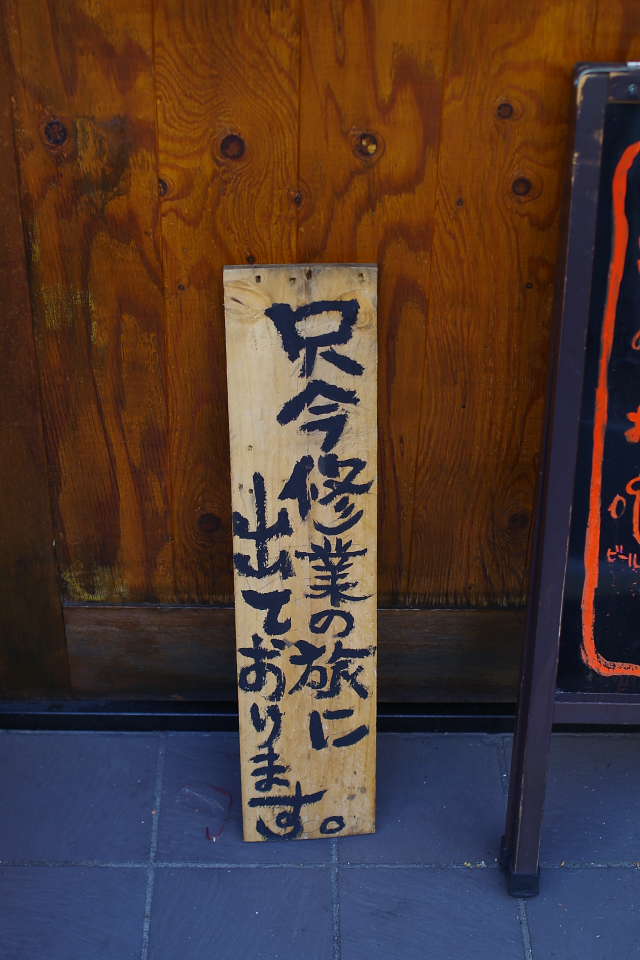 只今修業の旅に
出ております。
ビール